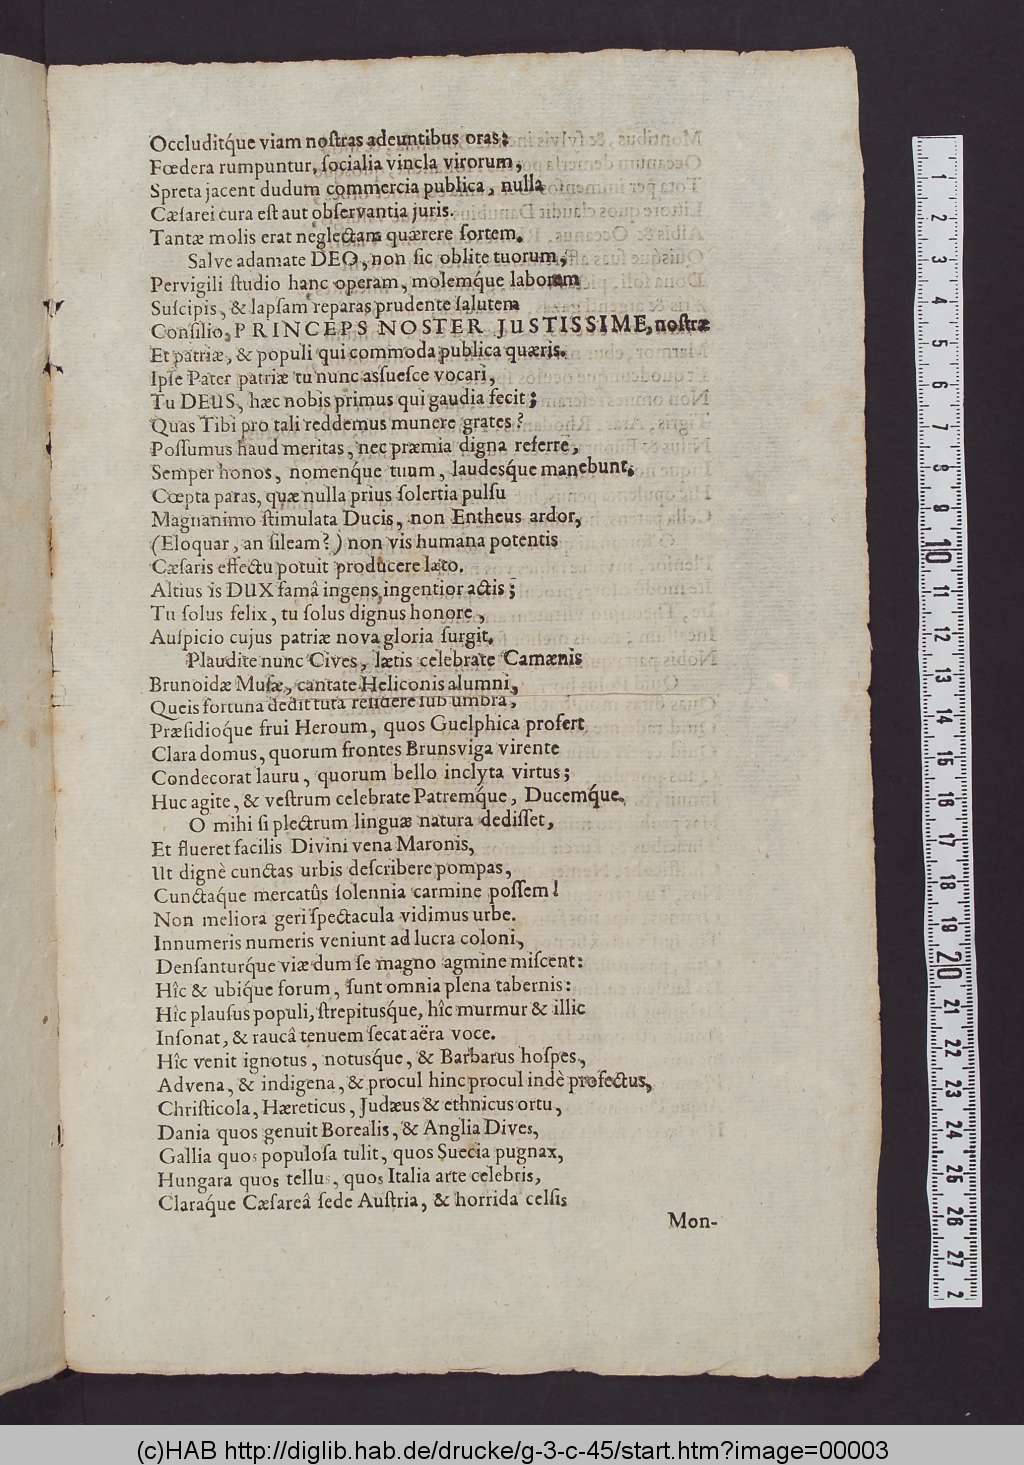 Occluditq́ue viam nostras adeuntibus oras:
Fœdera rumpuntur, ſocialia vincla virorum,
Spreta jacent dudum commercia publica, nulla
Cæſarei cura est aut obſervantia juris.
Tantæ molis erat neglectam quærere ſortem.
Salve adamate DEO, non ſic oblite tuorum,
Pervigili ſtudio hanc operam, molemq́ue laborum
Suſcipis, & lapſam reparas prudente ſalutem
Conſilio, PRINCEPS NOSTER JUSTISSIME, nostræ
Et patriæ, & populi qui commoda publica quæris.
Ipſe Pater patriæ tu nunc asſueſce vocari,
Tu DEUS, hæc nobis primus qui gaudia fecit;
Quas Tibi pro tali reddemus munere grates?
Posſumus haud meritas, nec præmia digna referre,
Semper honos, nomenq́ue tuum, laudesq́ue manebunt.
Cœpta paras, quæ nulla prius ſolertia pulſu
Magnanimo ſtimulata Ducis, non Entheus ardor,
(Eloquar, an ſileam?) non vis humana potentis
Cæſaris effectu potuit producere læto.
Altius is DUX famâ ingens, ingentior actis;
Tu ſolus felix, tu ſolus dignus honore,
Auſpicio cujus patriæ nova gloria ſurgit.
Plaudite nunc Cives, lætis celebrate Camænis
Brunoidæ Muſæ, cantate Heliconis alumni,
Queis fortuna dedit tuta reſidere ſub umbra,
Præſidioque frui Heroum, quos Guelphica profert
Clara domus, quorum frontes Brunsviga virente
Condecorat lauru, quorum bello inclyta virtus;
Huc agite, & veſtrum celebrate Patremq́ue, Ducemq́ue.
O mihi ſi plectrum linguæ natura dedisſet,
Et flueret facilis Divini vena Maronis,
Ut dignè cunctas urbis deſcribere pompas,
Cunctaque mercatûs ſolennia carmine posſem!
Non meliora geri ſpectacula vidimus urbe.
Innumeris numeris veniunt ad lucra coloni,
Denſanturq́ue viæ dum ſe magno agmine miſcent:
Hîc & ubiq́ue forum, ſunt omnia plena tabernis:
Hîc plauſus populi, ſtrepitusq́ue, hîc murmur & illic
Inſonat, & raucâ tenuem ſecat aëra voce.
Hîc venit ignotus, notusq́ue, & Barbarus hoſpes,
Advena, & indigena, & procul hinc procul indè profectus,
Chriſticola, Hæreticus, Judæus & ethnicus ortu,
Dania quos genuit Borealis, & Anglia Dives,
Gallia quos populoſa tulit, quos Suecia pugnax,
Hungara quos tellus, quos Italia arte celebris,
Claraq́ue Cæſareâ ſede Auſtria, & horrida celſis
Mon-
1
2
3
4
5
6
7
8
9
10
11
12
13
14
15
16
17
18
19
20
21
22
23
24
25
26
27
2
(c)HAB http://diglib.hab.de/drucke/g-3-c-45/start.htm?image=00003